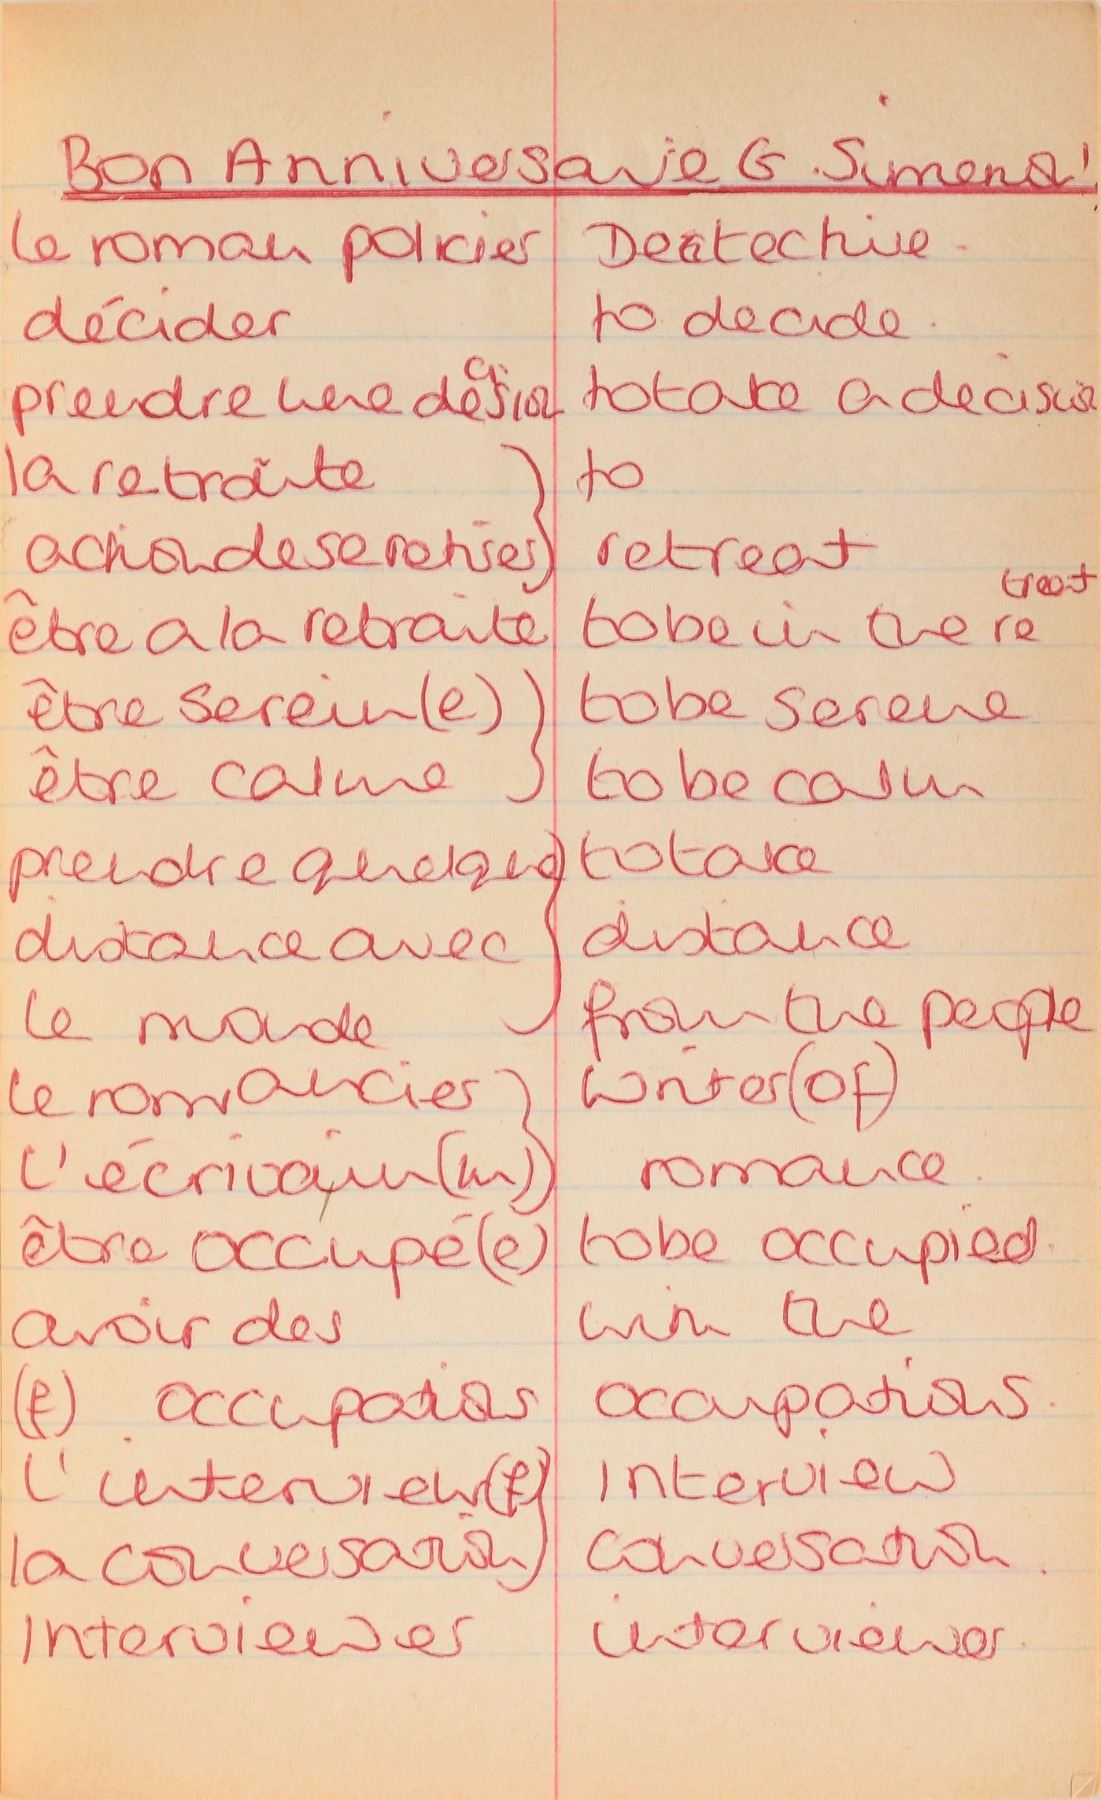 Bon Anniversaie G. Simenon!
le roman policier Detectecive.
décider to decide.
prendre une décision to take a decision
la retraîte to
action de se retirer retreat
être a la retraîte to be in the retreat
être serein(e) to be serene
être calme to be calm
prendre quelque to take
distance avec distance
le monde from the people
le romancier writer (of)
l'écrivain (m) romance.
être occupé(e) to be occupied.
avoir des with the
(f) occupations occupations.
l'interview (f) Interview
la conversation conversation.
Interviewer interviewer.